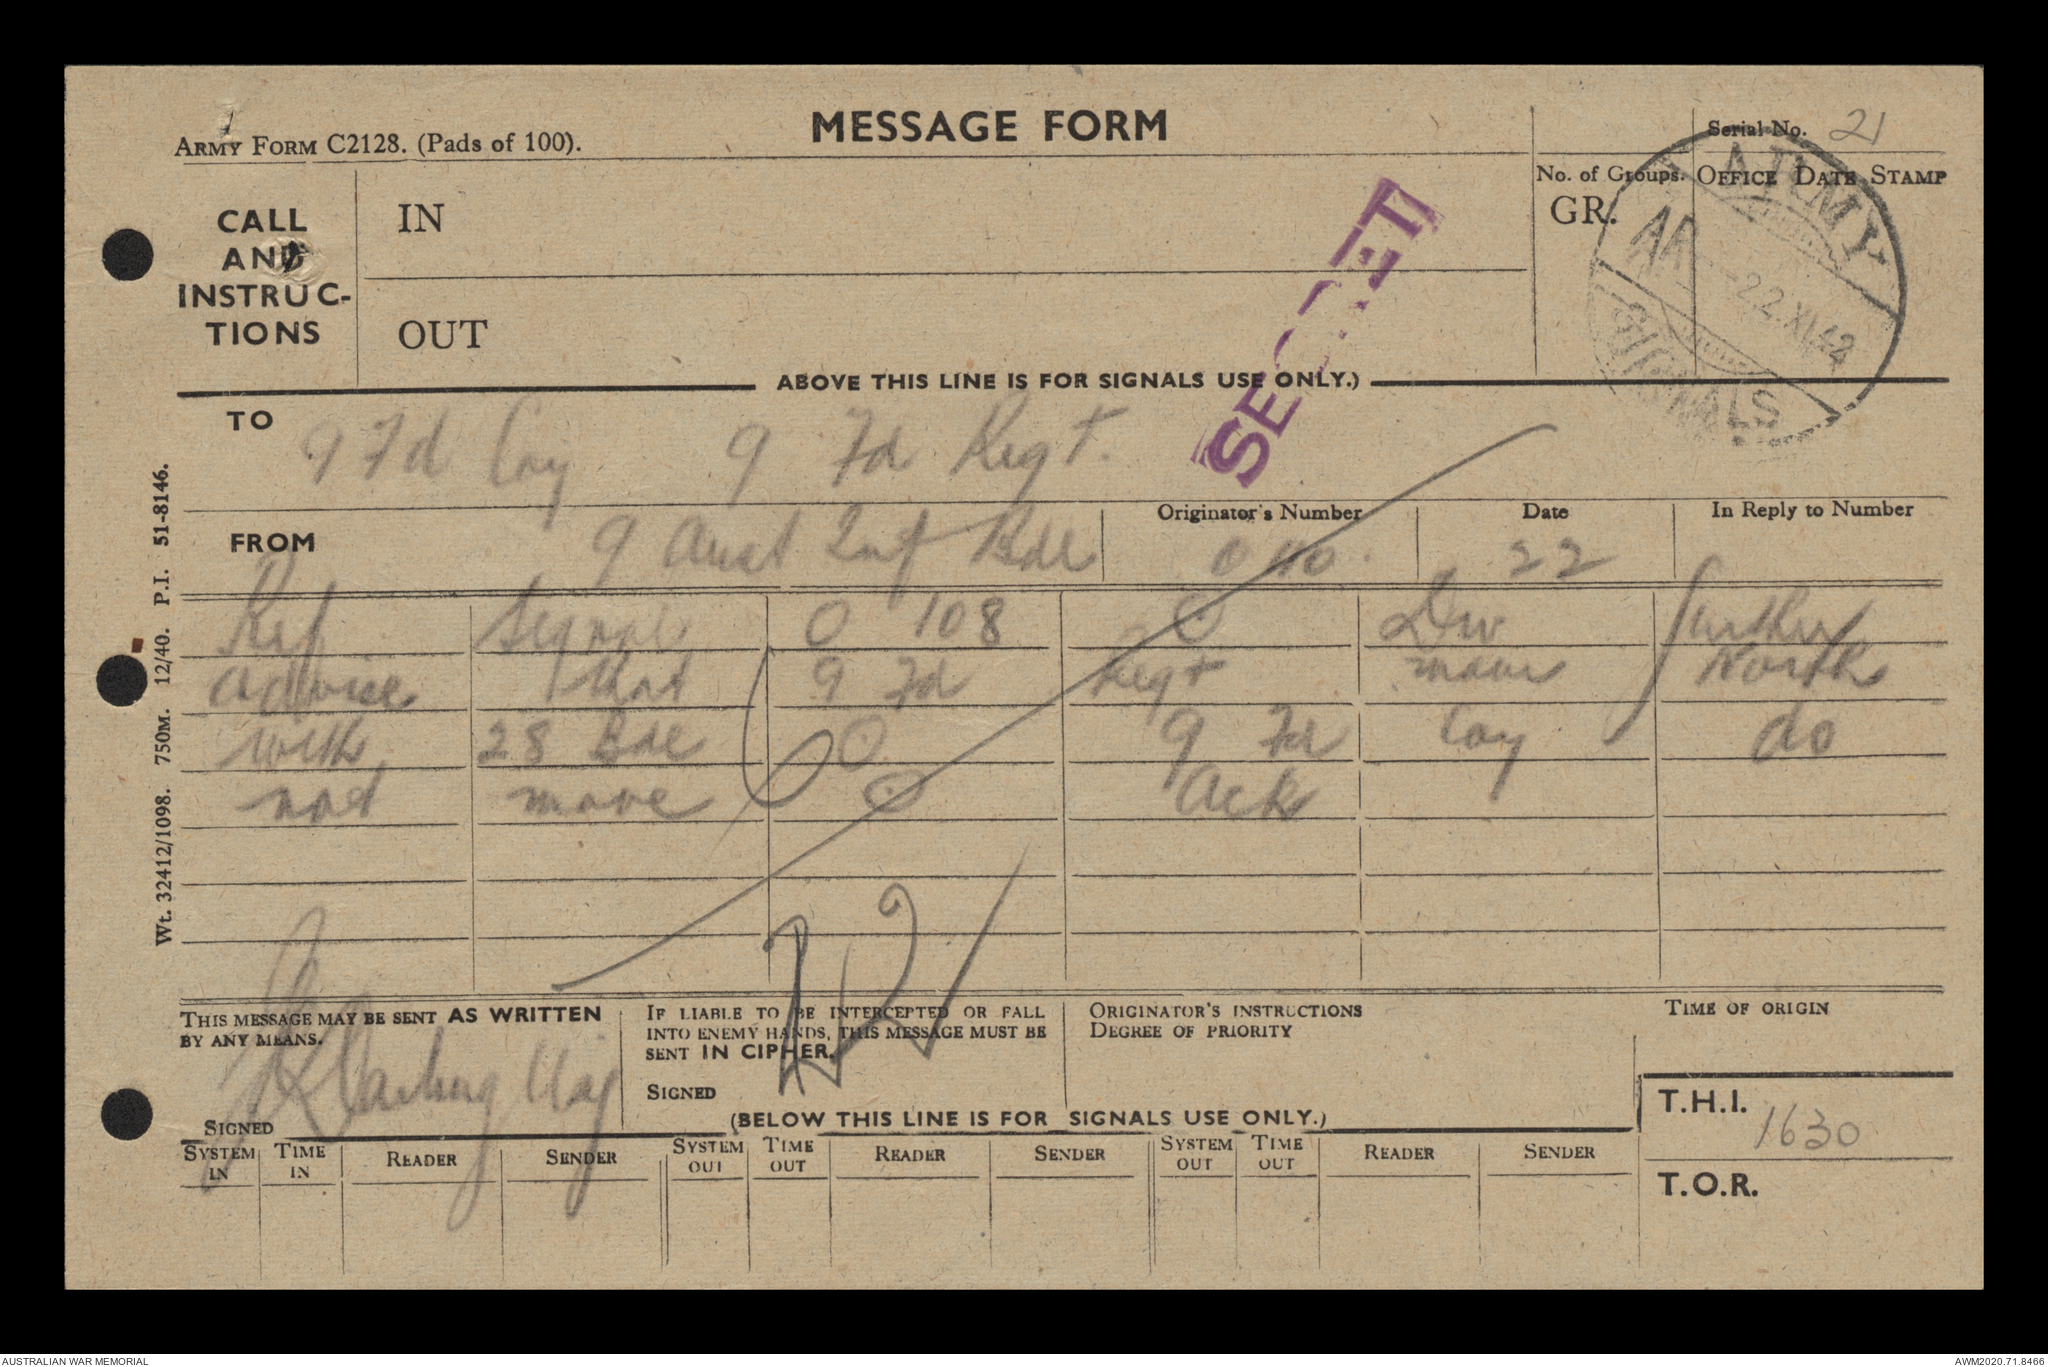 MESSAGE FORM
ARMY FORM C2128. (Pads of 100).
Serial No. 21
No. of Groups. OFFICE DATE STAMP
GR.
ARMY
22.XI.42
SIGNALS
CALL
AND
INSTRUC-
TIONS
IN
OUT
SECRET
ABOVE THIS LINE IS FOR SIGNALS USE ONLY.)
TO 9 Fd Coy 9 Fd Regt.
Originator's Number Date In Reply to Number
FROM 9 Aust Inf Bde 22
Ref Signal O 108 O Div further
advise that 9 Fd Regt move North
with 28 Bde O 9 Fd Coy do
not move O Ack
Wt. 32412/1098. 750M. 12/40. P.I. 51-8146.
THIS MESSAGE MAY BE SENT AS WRITTEN
BY ANY MEANS.
SIGNED
IF LIABLE TO BE INTERCEPTED OR FALL
INTO ENEMY HANDS, THIS MESSAGE MUST BE
SENT IN CIPHER.
SIGNED
ORIGINATOR'S INSTRUCTIONS
DEGREE OF PRIORITY
TIME OF ORIGIN
T.H.I. 1630
T.O.R.
(BELOW THIS LINE IS FOR SIGNALS USE ONLY.)
SYSTEM IN TIME IN READER SENDER SYSTEM OUT TIME OUT READER SENDER SYSTEM OUT TIME OUT READER SENDER
AUSTRALIAN WAR MEMORIAL
AWM2020.71.8466